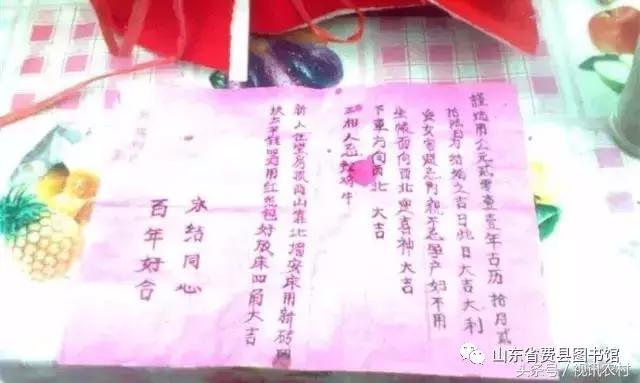 謹选用公元贰零壹壹年古历 拾月贰
拾陆日为结婚之吉日此日大吉大利
女客 忌孕产妇不用
坐帐面向西北 喜神大吉
下車方向西北 大吉
相人忌蛇鸡牛
新人在堂房 山靠北墙安床用新砖四
块 钱 用红纸包好放床四角大吉
永结同心
百年好合
山东省费县图书馆
头条号/视讯农村